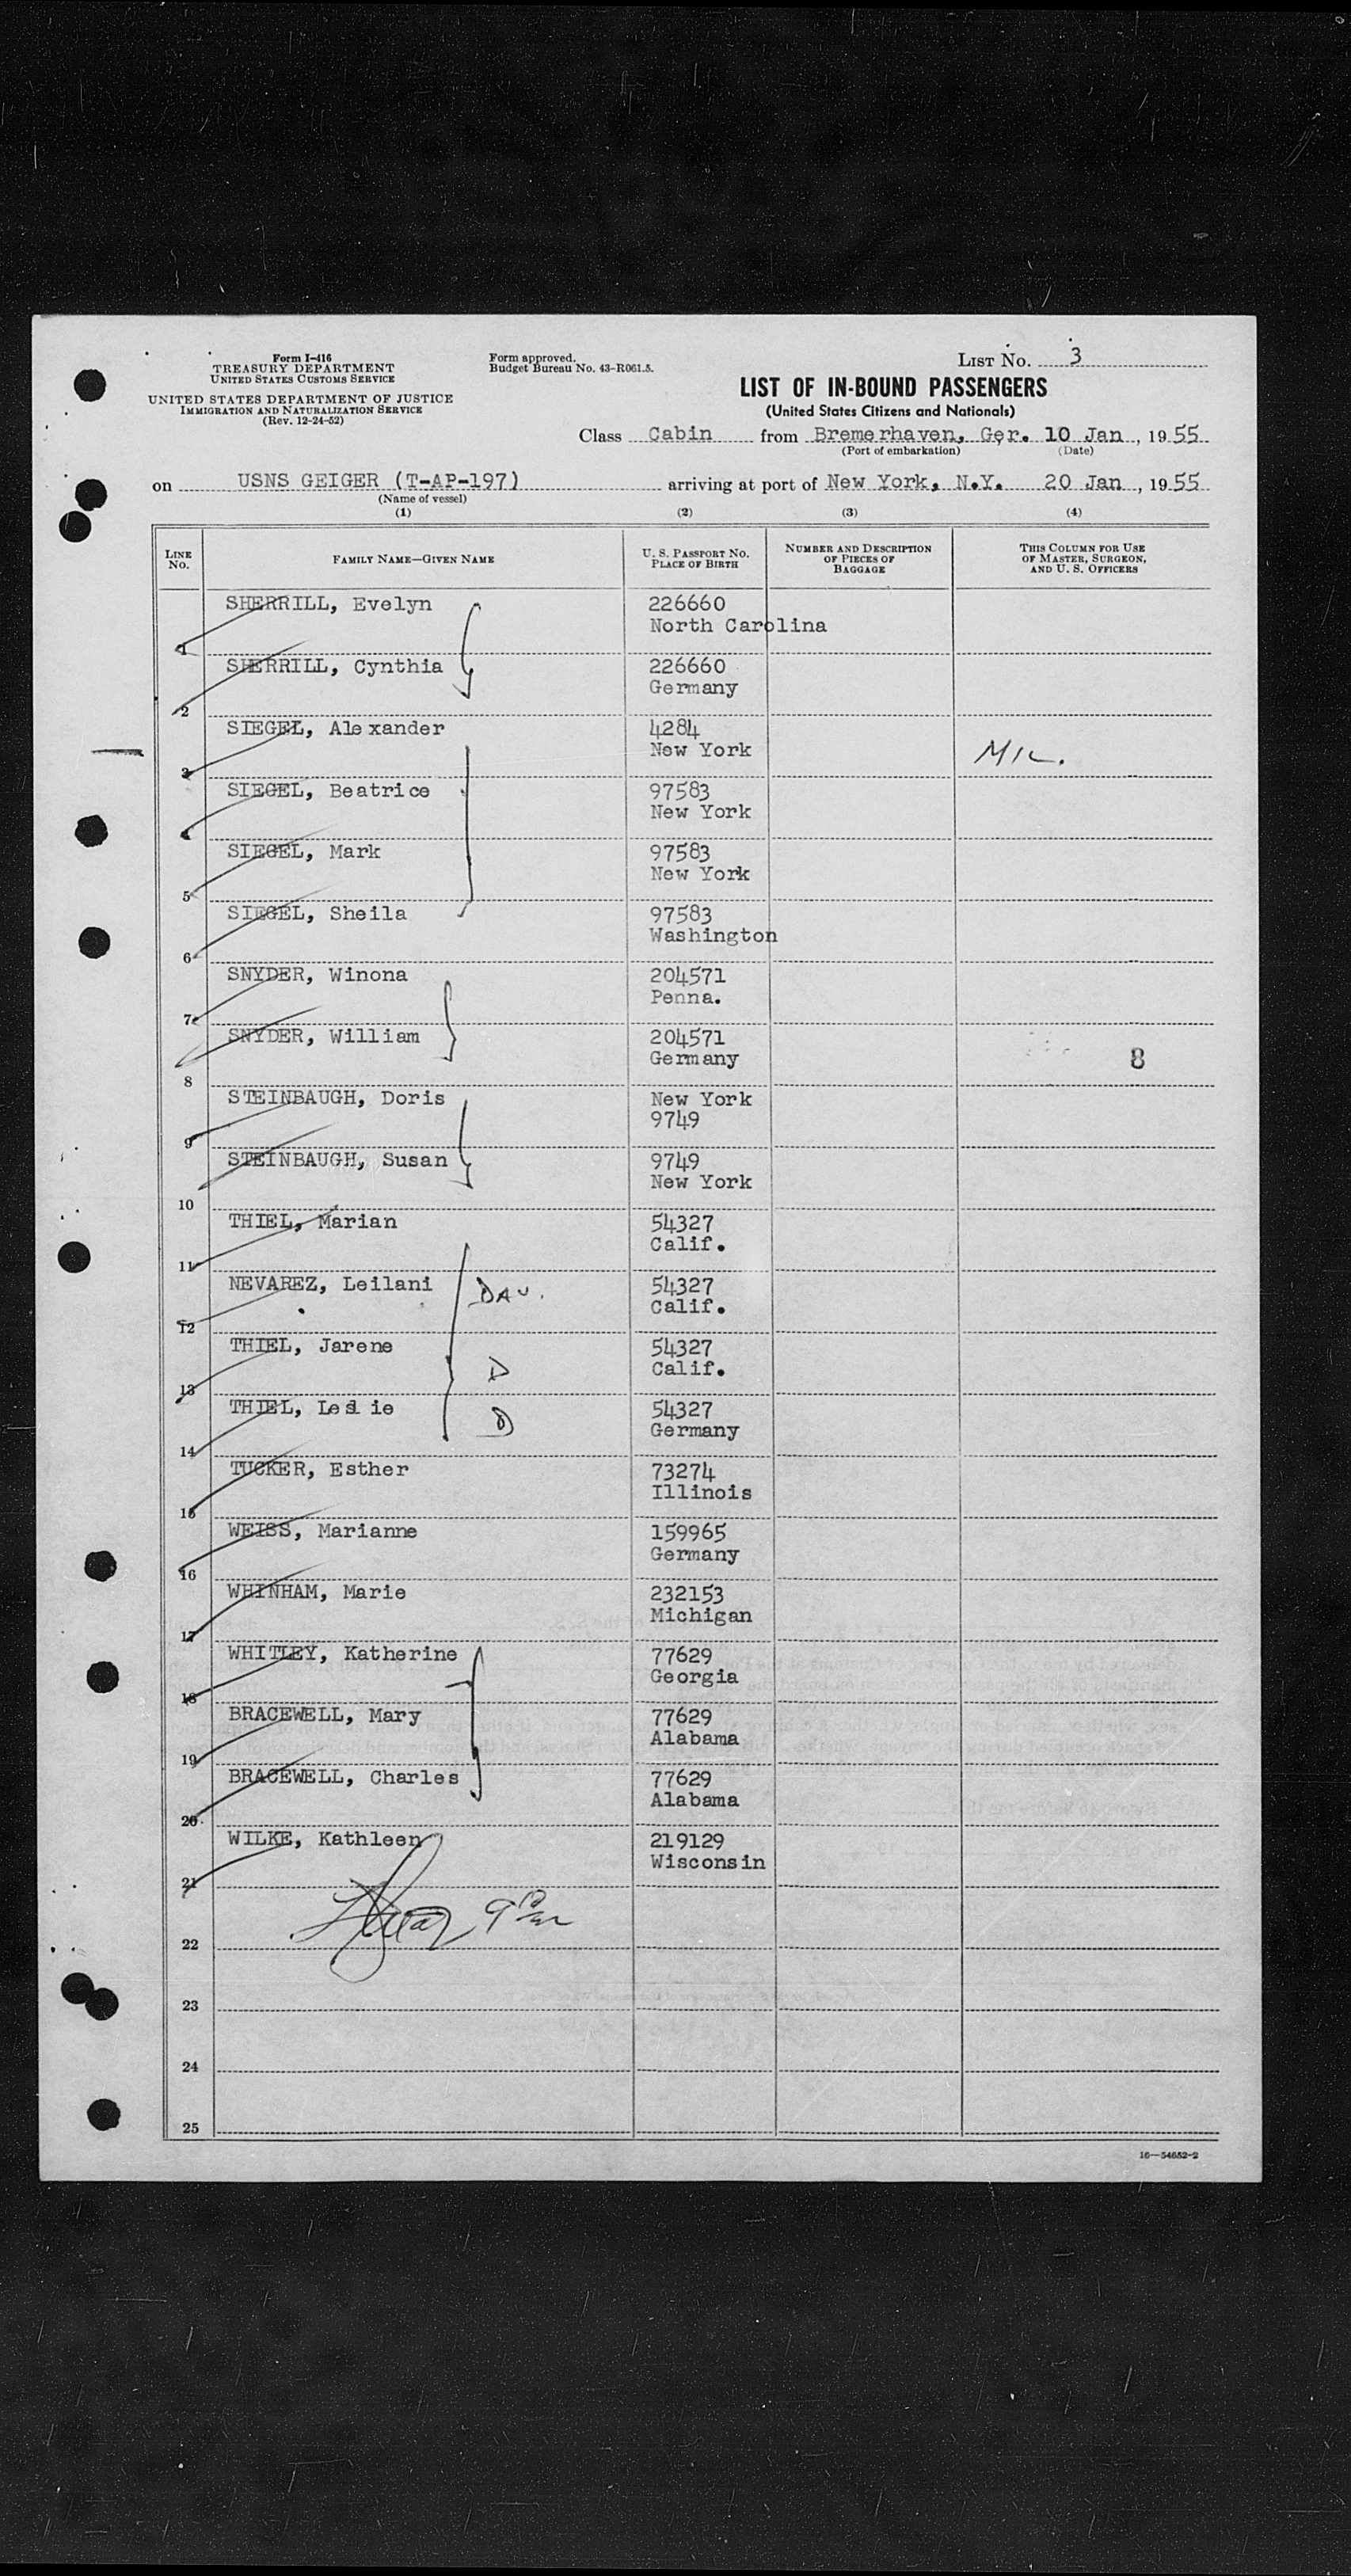 Form I-416
TREASURY DEPARTMENT
UNITED STATES CUSTOMS SERVICE
UNITED STATES DEPARTMENT OF JUSTICE
IMMIGRATION AND NATURALIZATION SERVICE
(Rev. 12-24-52)
Form approved.
Budget Bureau No. 43-R061.5.
LIST NO. 3
LIST OF IN-BOUND PASSENGERS
(United States Citizens and Nationals)
Class Cabin from Bremerhaven, Ger. 10 Jan, 1955
(Port of embarkation) (Date)
on USNS GEIGER (T-AP-197) arriving at port of New York, N.Y. 20 Jan, 1955
(Name of vessel)
(1) (2) (3) (4)
LINE NO. FAMILY NAME—GIVEN NAME U. S. PASSPORT NO. PLACE OF BIRTH NUMBER AND DESCRIPTION OF PIECES OF BAGGAGE THIS COLUMN FOR USE OF MASTER, SURGEON, AND U. S. OFFICERS
SHERRILL, Evelyn 226660
North Carolina
1
SHERRILL, Cynthia 226660
Germany
2
SIEGEL, Alexander 4284
New York
3
SIEGEL, Beatrice 97583
New York
4
SIEGEL, Mark 97583
New York
5
SIEGEL, Sheila 97583
Washington
6
SNYDER, Winona 204571
Penna.
7
SNYDER, William 204571
Germany 8
8
STEINBAUGH, Doris New York
9749
9
STEINBAUGH, Susan 9749
New York
10
THIEL, Marian 54327
Calif.
11
NEVAREZ, Leilani DAU. 54327
Calif.
12
THIEL, Jarene 54327
D Calif.
13
THIEL, Leslie 54327
D Germany
14
TUCKER, Esther 73274
Illinois
15
WEISS, Marianne 159965
Germany
16
WHINHAM, Marie 232153
Michigan
17
WHITLEY, Katherine 77629
Georgia
18
BRACEWELL, Mary 77629
Alabama
19
BRACEWELL, Charles 77629
Alabama
20
WILKE, Kathleen 219129
Wisconsin
21
22
23
24
25
16—54652-2